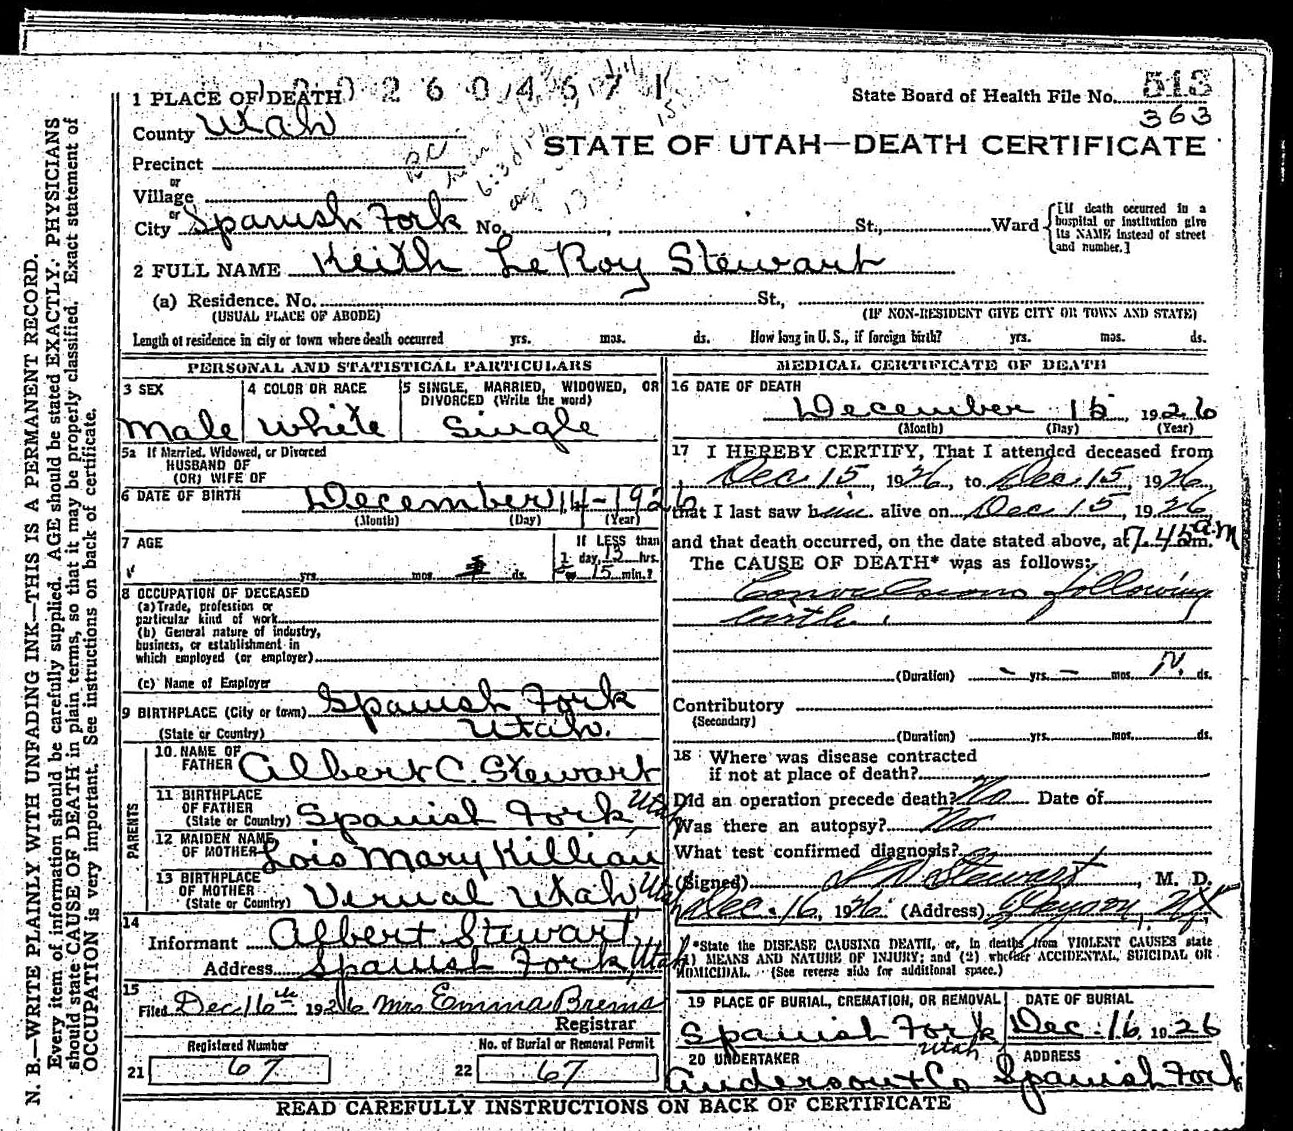 N. B.—WRITE PLAINLY WITH UNFADING INK—THIS IS A PERMANENT RECORD.
Every item of information should be carefully supplied. AGE should be stated EXACTLY. PHYSICIANS
should state CAUSE OF DEATH in plain terms, so that it may be properly classified. Exact statement of
OCCUPATION is very important. See instructions on back of certificate.
2 6 0 4 6 7 1
1 PLACE OF DEATH
State Board of Health File No. 513
363
County Utah
STATE OF UTAH—DEATH CERTIFICATE
Precinct
or
Village
or
City Spanish Fork No. , St., Ward
[If death occurred in a hospital or institution give its NAME instead of street and number.]
2 FULL NAME Keith LeRoy Stewart
(a) Residence. No. St.,
(USUAL PLACE OF ABODE) (IF NON-RESIDENT GIVE CITY OR TOWN AND STATE)
Length of residence in city or town where death occurred yrs. mos. ds. How long in U. S., if foreign birth? yrs. mos. ds.
PERSONAL AND STATISTICAL PARTICULARS
3 SEX
Male
4 COLOR OR RACE
White
5 SINGLE, MARRIED, WIDOWED, OR
DIVORCED (Write the word)
Single
5a If Married, Widowed, or Divorced
HUSBAND OF
(OR) WIFE OF
6 DATE OF BIRTH December 14-1926
(Month) (Day) (Year)
7 AGE
yrs. mos. ds.
If LESS than
1 day, 15 hrs.
or 15 min.?
8 OCCUPATION OF DECEASED
(a) Trade, profession or
particular kind of work
(b) General nature of industry,
business, or establishment in
which employed (or employer)
(c) Name of Employer
9 BIRTHPLACE (City or town) Spanish Fork
(State or Country) Utah.
PARENTS
10. NAME OF
FATHER Albert C. Stewart
11 BIRTHPLACE
OF FATHER
(State or Country) Spanish Fork Utah
12 MAIDEN NAME
OF MOTHER Lois Mary Killian
13 BIRTHPLACE
OF MOTHER
(State or Country) Vernal Utah
14
Informant Albert Stewart
Address Spanish Fork, Utah
15
Filed Dec 16th 1926 Mrs Emma Brems
Registrar
Registered Number
21 67
No. of Burial or Removal Permit
22 67
MEDICAL CERTIFICATE OF DEATH
16 DATE OF DEATH
December 15, 1926
(Month) (Day) (Year)
17 I HEREBY CERTIFY, That I attended deceased from
Dec. 15, 1926, to Dec. 15, 1926,
that I last saw him alive on Dec 15, 1926,
and that death occurred, on the date stated above, at 7.45 am.
The CAUSE OF DEATH* was as follows:
Convulsions following
birth.
(Duration) - yrs. - mos. ds.
Contributory
(Secondary)
(Duration) yrs. mos. ds.
18 Where was disease contracted
if not at place of death?
Did an operation precede death? No Date of
Was there an autopsy? No
What test confirmed diagnosis?
(Signed) Stewart, M. D.
Dec. 16, 1926 (Address) Payson, Ut
*State the DISEASE CAUSING DEATH, or, in deaths from VIOLENT CAUSES state
(1) MEANS AND NATURE OF INJURY; and (2) whether ACCIDENTAL, SUICIDAL OR
HOMICIDAL. (See reverse side for additional space.)
19 PLACE OF BURIAL, CREMATION, OR REMOVAL
Spanish Fork
Utah
DATE OF BURIAL
Dec. 16, 1926
20 UNDERTAKER
Anderson & Co
ADDRESS
Spanish Fork
READ CAREFULLY INSTRUCTIONS ON BACK OF CERTIFICATE